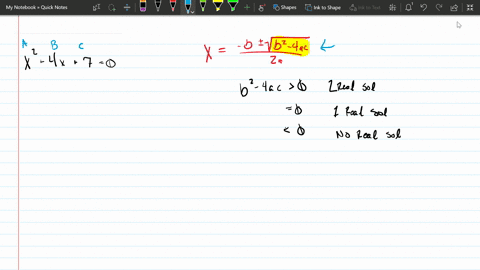 My Notebook » Quick Notes
Shapes
Ink to Shape
Ink to
A B C
x² - 4x + 7 = 0
x = -b ± √b² - 4ac / 2a ←
b² - 4ac > 0 2 Real sol
= 0 1 Real sol
< 0 No Real sol